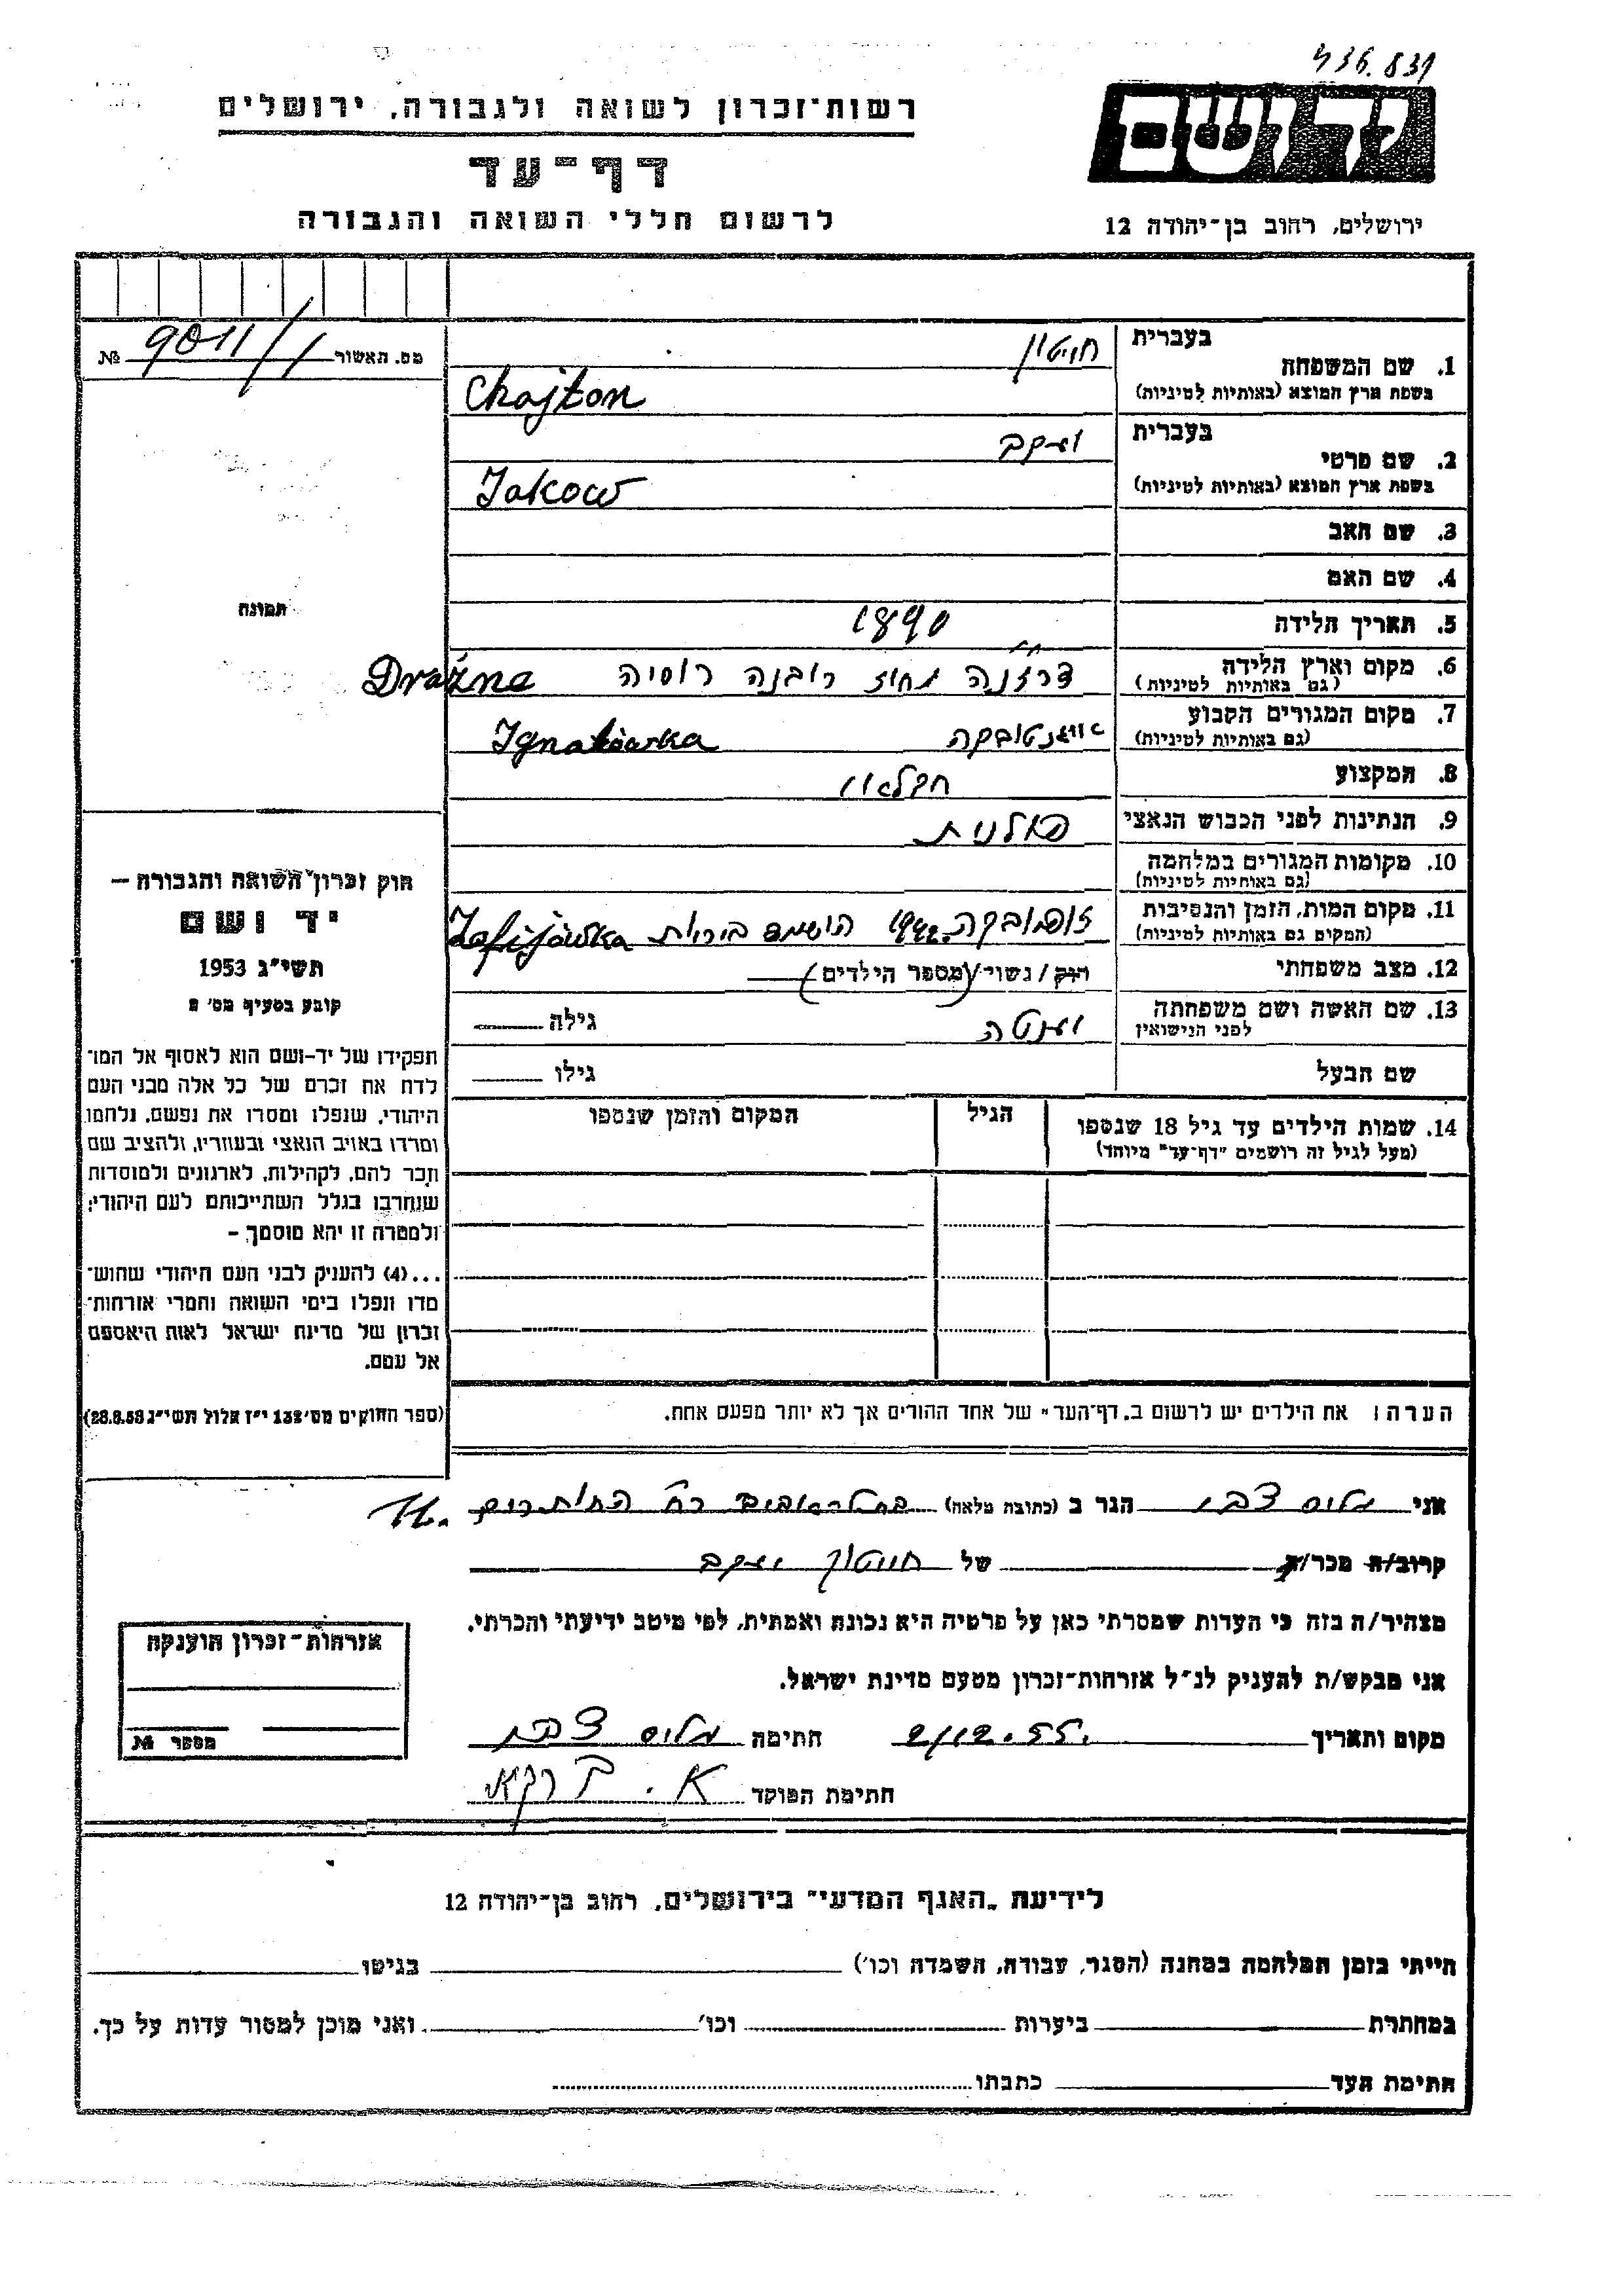 436.831
רשות־זכרון לשואה ולגבורה, ירושלים
יד ושם
דף־עד
לרשום חללי השואה והגבורה
ירושלים, רחוב בן־יהודה 12
מס. תאשור 9011/1 №
1. שם המשפחה
בעברית חייטון
בשפת ארץ המוצא (באותיות לטיניות) Chajton
2. שם פרטי
בעברית יעקב
בשפת ארץ המוצא (באותיות לטיניות) Jakow
3. שם האב
4. שם האם
5. תאריך הלידה 1890
6. מקום וארץ הלידה
(גם באותיות לטיניות) דרזנה מחוז רובנה רוסיה Drażne
7. מקום המגורים הקבוע
(גם באותיות לטיניות) Ignatówka
8. המקצוע חקלאי
9. הנתינות לפני הכבוש הנאצי פולנית
10. מקומות המגורים במלחמה
(גם באותיות לטיניות)
11. מקום המות, הזמן והנסיבות
(המקום גם באותיות לטיניות) 1942 הושמד ביריות Zofijówka
12. מצב משפחתי רוק/נשוי/(מספר הילדים)
13. שם האשה ושם משפחתה
לפני הנישואין יענטה גילה
שם הבעל גילו
14. שמות הילדים עד גיל 18 שנספו
(מעל לגיל זה רושמים "דף־עד" מיוחד)
הגיל
המקום והזמן שנספו
תמונה
חוק זכרון השואה והגבורה —
יד ושם
תשי"ג 1953
קובע בסעיף מס' 2
תפקידו של יד־ושם הוא לאסוף אל המו־
לדת את זכרם של כל אלה מבני העם
היהודי, שנפלו ומסרו את נפשם, נלחמו
ומרדו באויב הנאצי ובעוזריו, ולהציב שם
וזכר להם, לקהילות, לארגונים ולמוסדות
שנחרבו בגלל השתייכותם לעם היהודי;
ולמטרה זו יהא מוסמך –
...(4) להעניק לבני העם היהודי שהוש־
מדו ונפלו בימי השואה והמרי אזרחות־
זכרון של מדינת ישראל לאות היאספם
אל עמם.
(ספר החוקים מס' 132 י"ז אלול תשי"ג 28.8.53)
הערה: את הילדים יש לרשום ב„דף־העד" של אחד ההורים אך לא יותר מפעם אחת.
אני צבי הגר ב (כתובת מלאה)
קרוב/ה מכר/ה של חייטון יעקב
מצהיר/ה בזה כי העדות שמסרתי כאן על פרטיה היא נכונה ואמתית, לפי מיטב ידיעתי והכרתי.
אני מבקש/ת להעניק לנ"ל אזרחות־זכרון מטעם מדינת ישראל.
מקום ותאריך 2/12.55. חתימה צבי
חתימת הפוקד
אזרחות־זכרון הוענקה
מספר №
לידיעת „האגף המדעי" בירושלים, רחוב בן־יהודה 12
הייתי בזמן המלחמה במחנה (הסגר, עבודה, השמדה וכו') בגיטו
במחתרת ביערות וכו' ואני מוכן למסור עדות על כך.
חתימת העד כתבתו